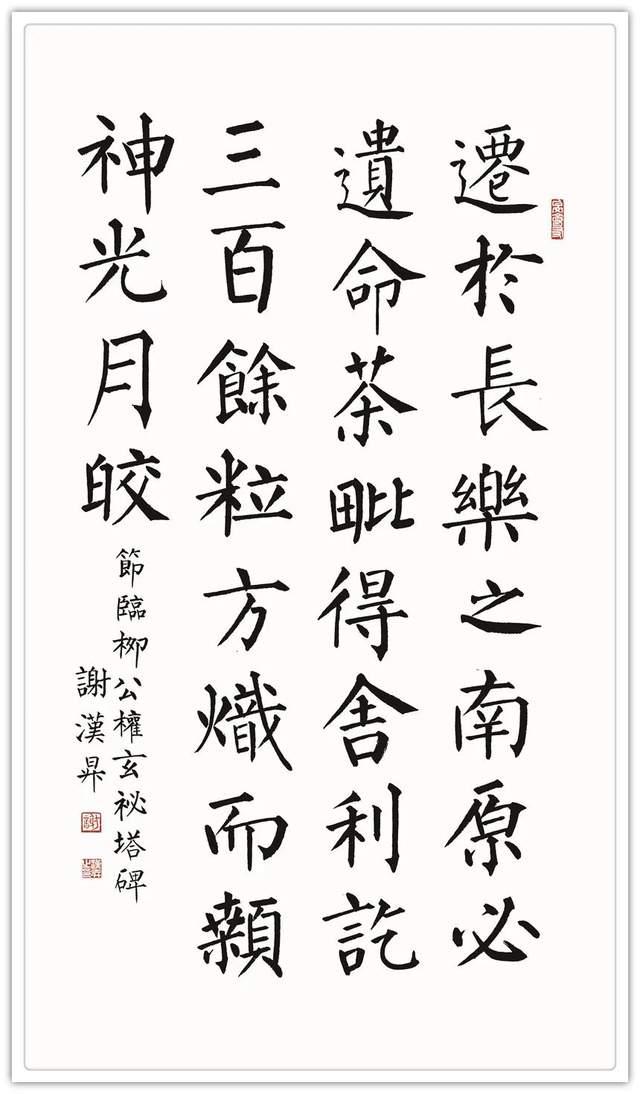 遷於長樂之南原必
遺命茶毗得舍利訖
三百餘粒方熾而顙
神光月皎
節臨柳公權玄祕塔碑
謝漢昇